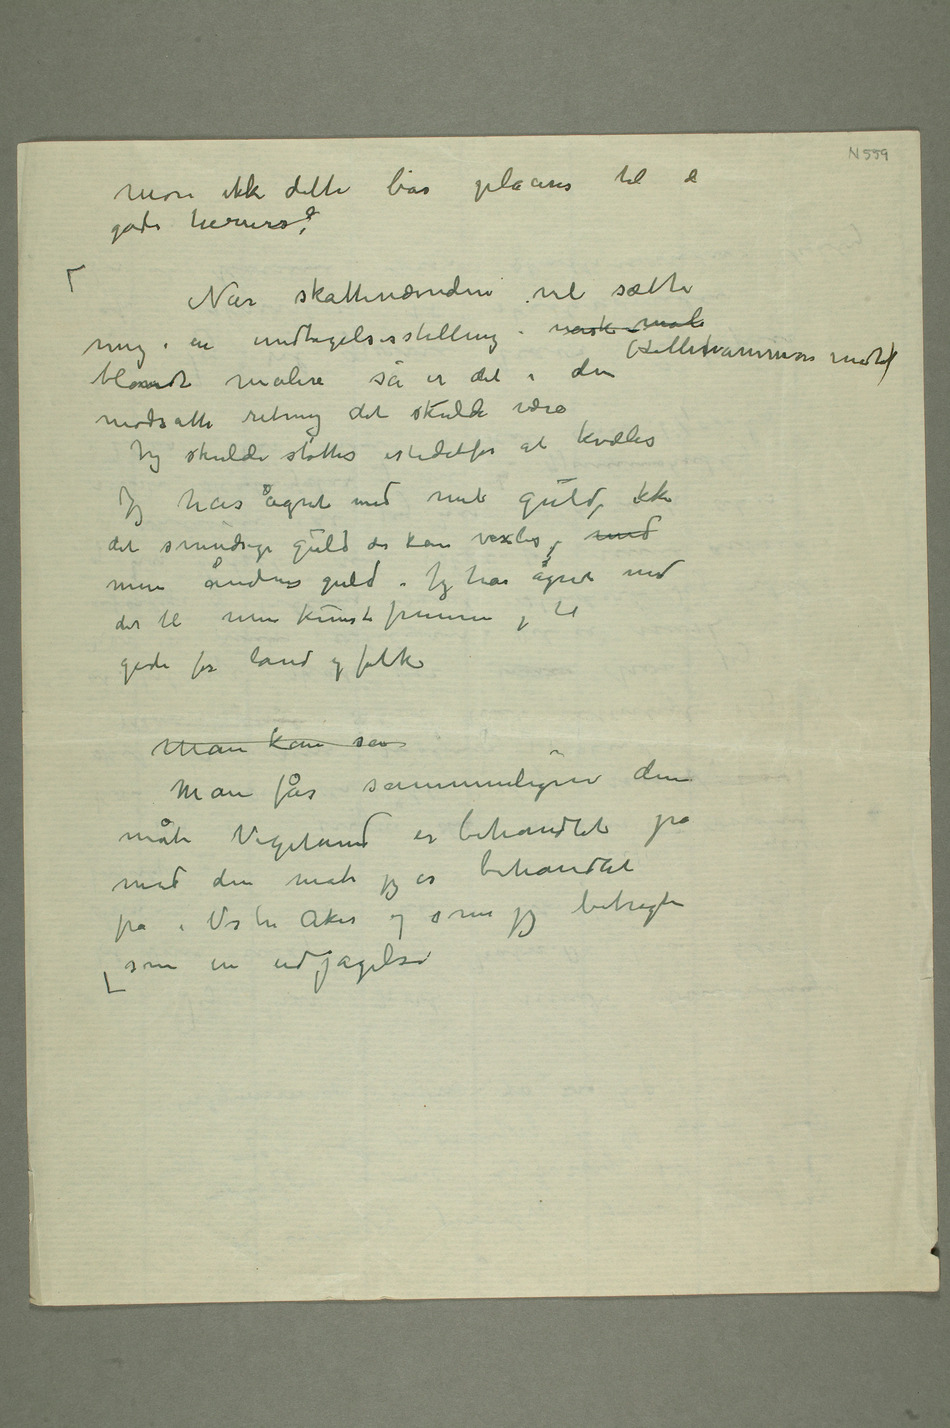 N 559
mon ikke dette bør plasers til de
gode herrers?
Når skattenævnden vil sætte
mig i en undtagelsesstilling i norsk mal
(Lillehammers modtof)
blandt malere så er det i den
modsatte retning det skulde være
Jeg skulde støttes istedetfor at kvæles
Jeg har ågret med mit guld, ikke
det smudsige guld der kan vexles, med
men åndens guld. Jeg har ågret med
det til min kunsts fremme, til
gode for land og folk
Man kan sa
Man får sammenligne den
måte Vigeland er behandlet på
med den måte jeg er behandlet
på i Vestre Aker og som jeg betragter
som en udjagelse